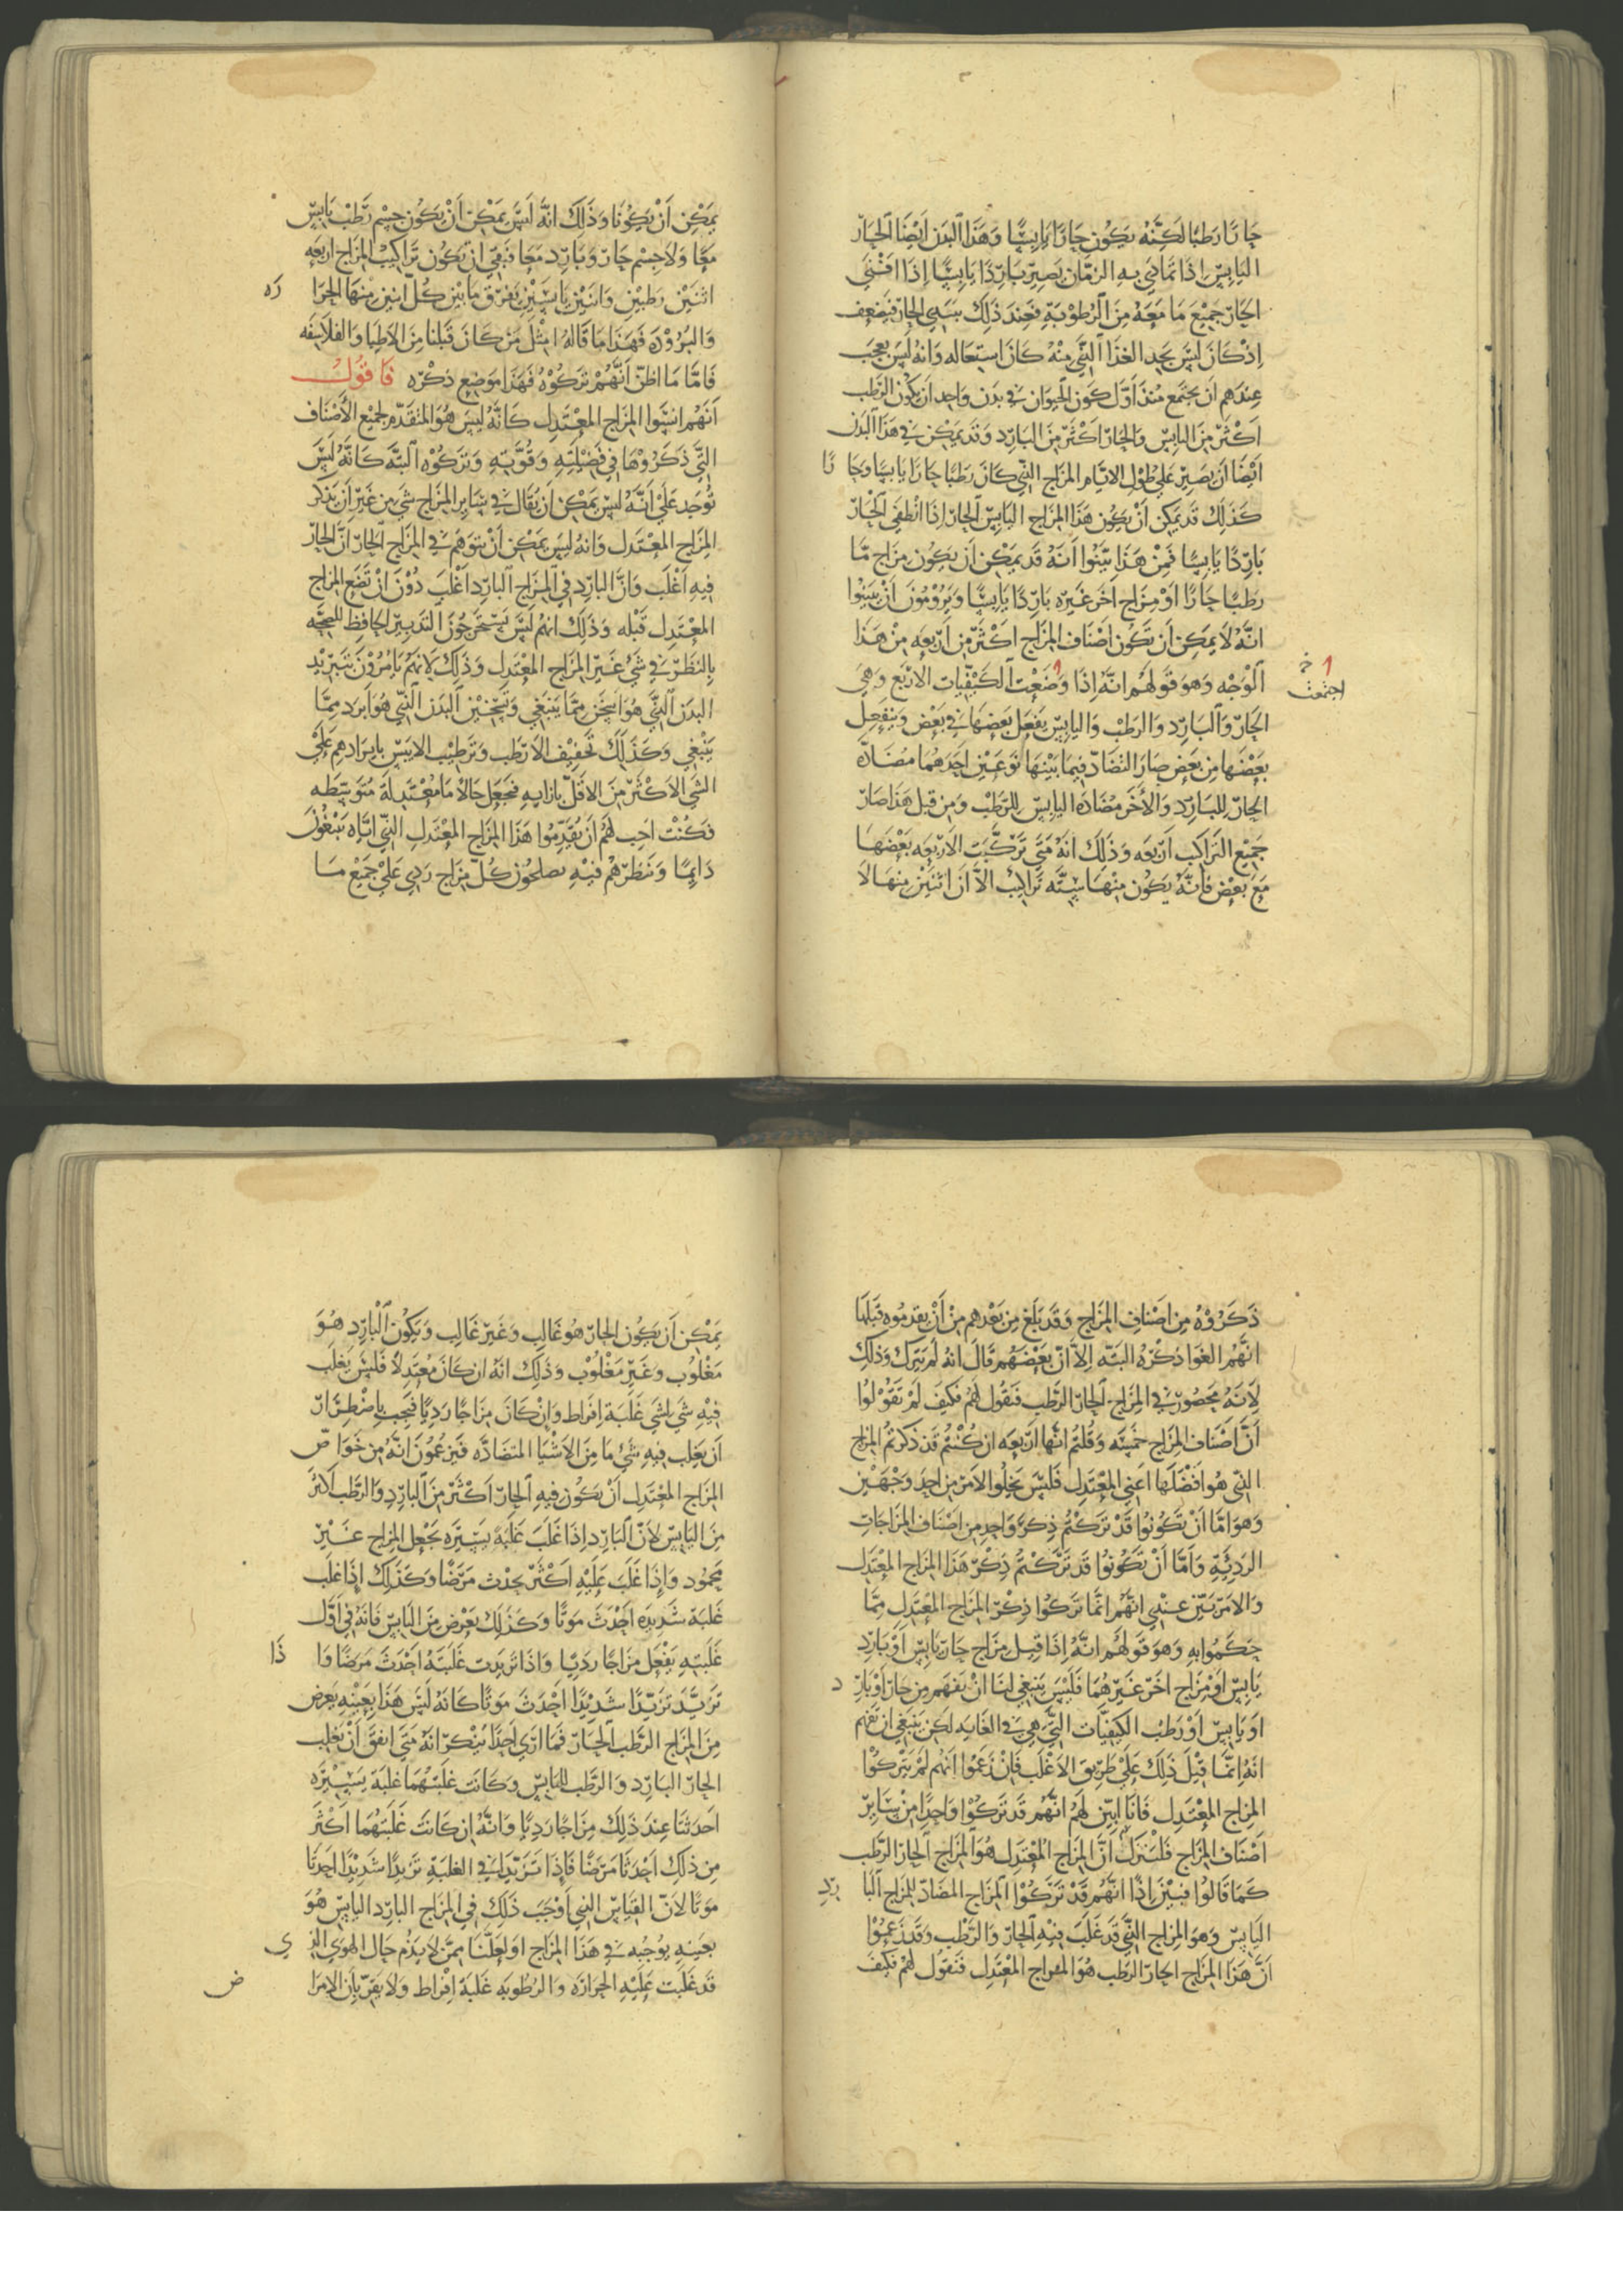 حَارًّا رَطبًا لَكِنَّهُ يَكُون حَارًّا يَابِسًا وَهَذَا البَدَن اَيْضًا الحَارّ
اليَابِسّ اِذَا تَمَادَي بِهِ الزمَان يَصِير بَارِدًا يَابِسًّا اِذَا افْنَي
الحَارّ جَمِيْع مَا مَعَهُ مِنَ الرُطوْبَةِ فَعِندَ ذَلِكَ يَنتَهِي الحَارّ فَيَضعف
اِذْ كَانَ لَيسَ يَجِد الغذَا الَّذِّي مِنْهُ كَانَ اسْتِعَاله وَانهُ لَيسَ بِعَجَب
عِندَهم ان يجتَمع مُنذ اَوَّل كَون الحَيوَان فِي بَدَن وَاحِد ان يَكُون الرّطب
اَكثَرّ مِنَ اليَابِسّ وَالحَارّ اَكثَرّ مِنَ البَارِّد وَقَد يَمكِن فِي هَذَا البَدَن
اَيْضًا اَن يَصِيرّ عَلي طُوْل الايَّام المزَاج الذّي كَانَ رَطبًا حَارًا يَابِسًا وَحَا رًا
كَذَلِكَ قَد يَمكِن اَنْ يَكُون هَذَا المِزَاج اليَابِسّ الحَارّ اِذَا انْطفَي الحَارّ
بَارِّدًا يَابِسًا فَمِنْ هَذَا بَيَّنُوا اَنَهُ قَد يَمْكِن اَن يَكُون مِزَاج مَّا
رَطبًا حَارًا اَوْ مِزَاج اخَر غَيرّه بَارِّدًا يَابِسًّا وَيَرُوْمُوْن اَنْ يبَيّنُوا
انَّهُ لَا يمَكِن ان تَكُون اَصْنَاف المِزَاج اكْثَرّ مِن اَرّبعَه مِنْ هَذَا
الوَجْه وَهوَ قَولهُم انّهُ اِذَا وَضعَت الكَيْفِّيَات الاَربَع وَهِي
اجتمعت خ
الحَارّ وَالبَارِّد وَالرَطبْ وَاليَابِسّ يَفعَل بَعضهَا فِي بَعْض وَينفعِل
بَعْضهَا مِن بَعض صَارَ التضَادّ فِيمَا بَيْنهَا نَوعَيْن اَحَدهُمَا مُضَادّه
الحَارّ لِلبَارِّد وَالاُخَر مُضَادَه اليَابِسّ لِلرّطبْ وَمِن قبل هَذَا صَارّ
جَمِيْع التّرَاكيب اَرّبعَه وَذَلِكَ انَهُ مَتَي تَرّكّبَت الاَرّبعَه بَعْضهَا
مَعَ بَعْض فَانّهُ يَكُون مِنْهَا سِتّه تَرَاكيب الاّ اَنّ اثنَيْن مِنهَا لاَ
يَمكِن اَنْ يَكوُنَا وَذَلِكَ انهَّ لَيسَ يَمكِن اَنْ يَكُون جِسْم رَطبْ يَابِسّ
مَعًا وَلاَ جِسْم حَارّ وَبَارِّد مَعًا فَبَقِيَ انْ يَكُون تَرَاكِيْب المِزَاج اَربَعَه
اثنَيْن رَطبيْن وَاثنَيْن يَابِسَيْن يَفرّق مَابَيْن كُلّ اثنين مِنهَا الحَرَا رَه
وَالبُرُوْدَه فَهَذَا مَا قَالَهُ مِثْلَ مَنْ كَانَ قَبلنَا مِنَ الاَطِبَا وَالفلَاسِفَه
فَامَّا مَا اظنّ اَنَّهُمْ تَرَكوُهُ فَهَذَا مَوضِع ذِكْرّه فَاَقُولُ
اَنَهُم انسَوا المِزَاج المعْتَدِل كَانّهُ لَيسَ هُوَ المتقَدّم لجمِيْع الاَصْنَاف
التّي ذَكَرُوْهَا فِي فَضيْلَتِهِ وَقُوّتِهِ وَتَرَكوُه اَلبتّه كَانّهُ لَيسَّ
تُوْجَد عَليَ اَنّهُ لَيسَ يَمْكِن ان يُقَال فِي سَايِر المِزَاج شَي مِن غَيْر اَن يَذكر
المِزَاج المعْتَدِل وَانهُ لَيسَ يَمْكِن اَنْ يتوَهَّم فِي المِزَاج الحَارّ اَنّ الحَارّ
فِيهِ اَغْلَب وَانّ البَارِّد فِي المِزَاج البَارِّد اغْلَب دُوْنَ اَنْ تَضَع المِزَاج
المعْتَدِل قَبْله وَذَلِكَ انهُم لَيسَّ يَسْتَخرِجُوْن التَدبِيرّ الحَافِظ لِلصِّحَّه
بِالنظَر فِي شَيْ غَيْر المِزَاج المعْتَدِل وَذَلِكَ لاَنهُمْ يَامُرُوْن بتَبرِّيد
البدَن الّذّي هُوَ اَسْخَن مِمَّا يَنبَغِي وَتَسْخِيْن البَدَن الّذّي هُوَ اَبرَد مِمَّا
يَنبْغِي وَكَذَلِكَ تَجْفِيْف الاَرْطَب وَترْطِيْب الاَيْبَسّ بِايرَادهِم عَليَ
الشَي الاَكْثَرّ مِنَ الاَقَلّ بازَايِهِ فَجعَلَ حَالاً مَا مُعْتَدِلَة مُتوسِّطَه
فَكُنْت احِب لهُم اَنْ يُقَدِّمُوا هَذَا المِزَاج المعْتَدِل الّذّي ايّاه يَبْغُوْن
دَايِمًا وَنَظَرّهُمْ فِيْهِ يصْلحُوْن كُلّ مِزَاج رَدِي عَليَ جَمِيْع مَا
ذَكَرُوْهُ مِن اَصْنَافِ المِزَاج وَقَد بَلَغ مِن بُعدهم مِنْ اَنْ يقدمُوه قَبْلهَا
انّهُم الغَوا ذِكْرّهُ البتّه اِلاّ اَنّ بَعْضَهُم قَالَ انهُ لَمْ يَترَك وَذَلِكَ
لاَنهُ مَحصُوْر فِي المِزَاج الحَارّ الرَّطب فَنقُول لهُم فَكَيفَ لَمْ تَقُوْلُوا
اَنّ اَصْنَاف المِزَاج خَمْسَه وَقُلْتُم انهّا اَرّبعَه ان كُنْتُم قَد ذَكَرتُم المِزَاج
الذّي هُوَ افْضَلهَا اَعني المعْتَدِل فَلَيسَّ يَخلُوا الاَمر مِن احِدَ وَجْهَيْن
وَهوَ امَّا اَنْ تَكُونُوا قَدْ تَرَكْتُم ذِكرّ وَاحِد مِن اصْنَاف المزَاجَات
الرَدِيّةِ وَامَّا اَنْ تَكُونُوا قَد تَرَكْتُم ذِكْرّ هَذَا المِزَاج المعْتَدِل
وَالاَمرّ بَيّن عِنْدِي انَّهُم انمَّا تَرَكُوا ذِكْرّ المِزَاج المعْتَدِل مِمَّا
حكَمُوا بِهِ وَهوَ قَولهُم انّهُ اِذَا قِيل مِزَاج حَارّ يَابِسّ اَوْ بَارِّد
يَابِسّ اوْ مِزَاج اخَرّ غَيْرَهُمَا فَلَيْسَ يَنبَغِي لنَا انْ نَفهَم مِن حَارّ اَوْ بَارِّ د
اوَ يَابِسّ اَوْ رَطبْ الكَيفيّات التِّي هِي فِي الغَايَه لَكِن يَنبَغِي ان نَفهَم
انهُ انمَّا قِيْلَ ذَلِكَ عَليَ طَرِّيق الاَغْلَب فَاِنْ زَعَمُوا اَنهُم لَمْ يَترَكُوْا
المِزَاج المعْتَدِل فَانَا ابَيّن لهُم انّهُم قَد تَرَكُوْا وَاحِدًا مِنْ سَايِرّ
اَصْنَاف المِزَاج فَلْنُنزل اَنَّ المِزَاج المُعْتَدِل هُوَ المِزَاج الحَارّ الرَّطب
كَمَا قَالُوا فبيّن اِذًا انّهُم قَدْ تَرَكُوْا المِزَاج المضَادّ لِلمِزَاج البَا رِّدِ
اليَابِسّ وَهوَ المِزَاج الذّي قَد غَلَبَ فِيْهِ الحَارّ وَالرَّطْب وَقَد زَعَمُوْا
اَنّ هَذَا المِزَاج الحَارّ الرَّطب هُوَ المِزَاج المعْتَدِل فَنقُول لهُمْ فَكَيفَ
يَمْكِن اَن يَكُون الحَارّ هُوَ غَالِب وَغَيْر غَالِب وَيَكُون البَارِّد هُوَ
مَغْلُوب وَغَيْر مَغْلُوْب وَذَلِكَ انّهُ ان كَانَ مُعْتَدِلاً فَلَيسَ يَغلَب
فِيْهِ شَي لِشَي غَلَبَة اِفرَاط وَاِنْ كَانَ مِزَاجًا رَدِيًا فَيَجِب بِاِضْطِرَار
اَن يَغلِب فِيهِ شَيْ مَا مِنَ الاَشْيَا المتضَادّه فَيَزعُمُوْنَ انّهُ مِن خَوَا صّ
المِزَاج المعْتَدِل اَنْ يَكُوْن فِيهِ الحَارّ اكْثَرّ مِنَ البَارِّد وَالرَّطب اَكثرَ
مِنَ اليَابِسّ لاَنّ البَارِّد اِذَا غَلَبَ غَلَبَةً يَسِيْرَه يَجْعَل المِزَاج غَيْرّ
مَحمُود وَاِذَا غَلَبَ عَلَيْهِ اَكْثَرّ يحْدِث مَرَضًا وَكَذَلِكَ اِذَا غلَب
غَلَبَة شَدِيدَه اَحْدَثَ مَوتًا وَكَذَلِكَ يَعْرِض مِنَ اليَابِسّ فَانهُ فِي اَوَّل
غَلَبَتِهِ يَفْعَل مِزَاجًا رَدِيًا وَاِذَا تَزيدَت غَلَبَتهُ اَحْدَثَ مَرَضًا وَا ذَا
تَزَيّدَ تَزيّدًا شَدِيْدًا اَحْدَثَ مَوتًا كَانهُ لَيسَّ هَذَا بِعَيْنِهِ يَعرِض
مِنَ المِزَاج الرّطب الحَارّ فَمَا ارَي اَحَدًا يُنْكِرّ انهُ مَتَي اتفقَ اَنْ يَغلِب
الحَارّ البَارِّد وَالرّطب لليَابِسّ وَكَانَت غلَبَتهُمَا غَلبَة يَسِيْرَه
احَدَثتَا عِندَ ذَلِكَ مِزَاجًا رَدِيًا وَانّهُ اِن كَانَتَ غَلَبَتهُمَا اَكْثَرَ
مِن ذَلِكَ اَحْدَثَا مَرَضًا فَاِذَا تَزَيّدتَا فِي الغلبَةِ تَزيدًا شَدِيْدًا احَدثَا
مَوتًا لاَنّ القِيَاسّ الذِي اَوْجَبَ ذَلِكَ فِي المِزَاج البَارِّد اليَابِسّ هُوَ
بعَينِهِ يُوْجبه فِي هَذَا المِزَاج اوَ لعَلّنَا مِمَّن لاَ يَذُم حَال الهَوَي الذِ ي
قَد غَلَبَت عَلَيْهِ الحَرَارَه وَالرُطُوبَه غَلَبَة اِفْرَاط وَلاَ يَقرّ بِاَن الاَمرَا ض